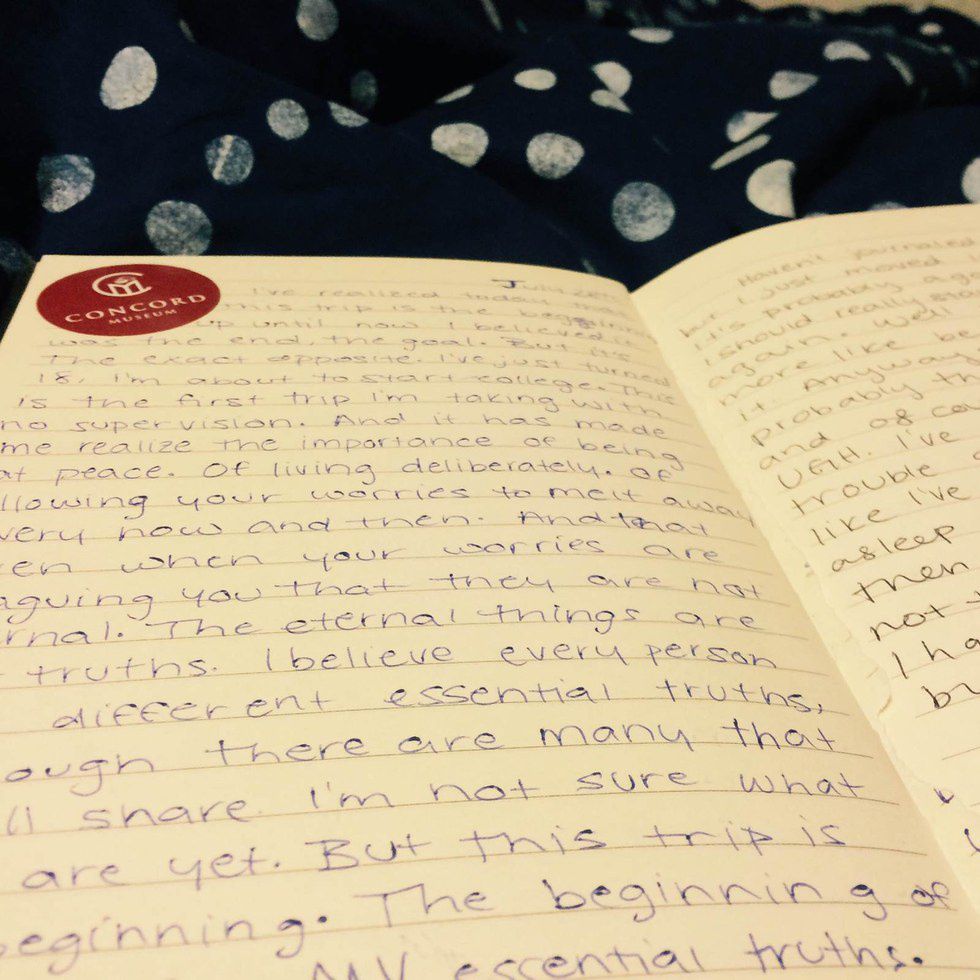 CONCORD
MUSEUM
I've realized today
this trip is the
up until now I believed it
was the end the goal. But it's
The exact opposite. I've just turned
18. I'm about to start college. This
is the first trip I'm taking with
no supervision. And it has made
me realize the importance of being
at peace. Of living deliberately. Of
llowing your worries to melt away
very now and then. And that
en when your worries are
aguing you that they are not
rnal. The eternal things are
truths. I believe every person
different essential truths,
ough there are many that
ll share. I'm not sure what
are yet. But this trip is
beginning. The beginning of
MY essential truths.
Haven't journaled
I just moved
but it's probably
I should read
again. Well
more like
it. Anyway
probably
and of
UGH. I've
trouble
like I've
asleep
then
not
I ha
br